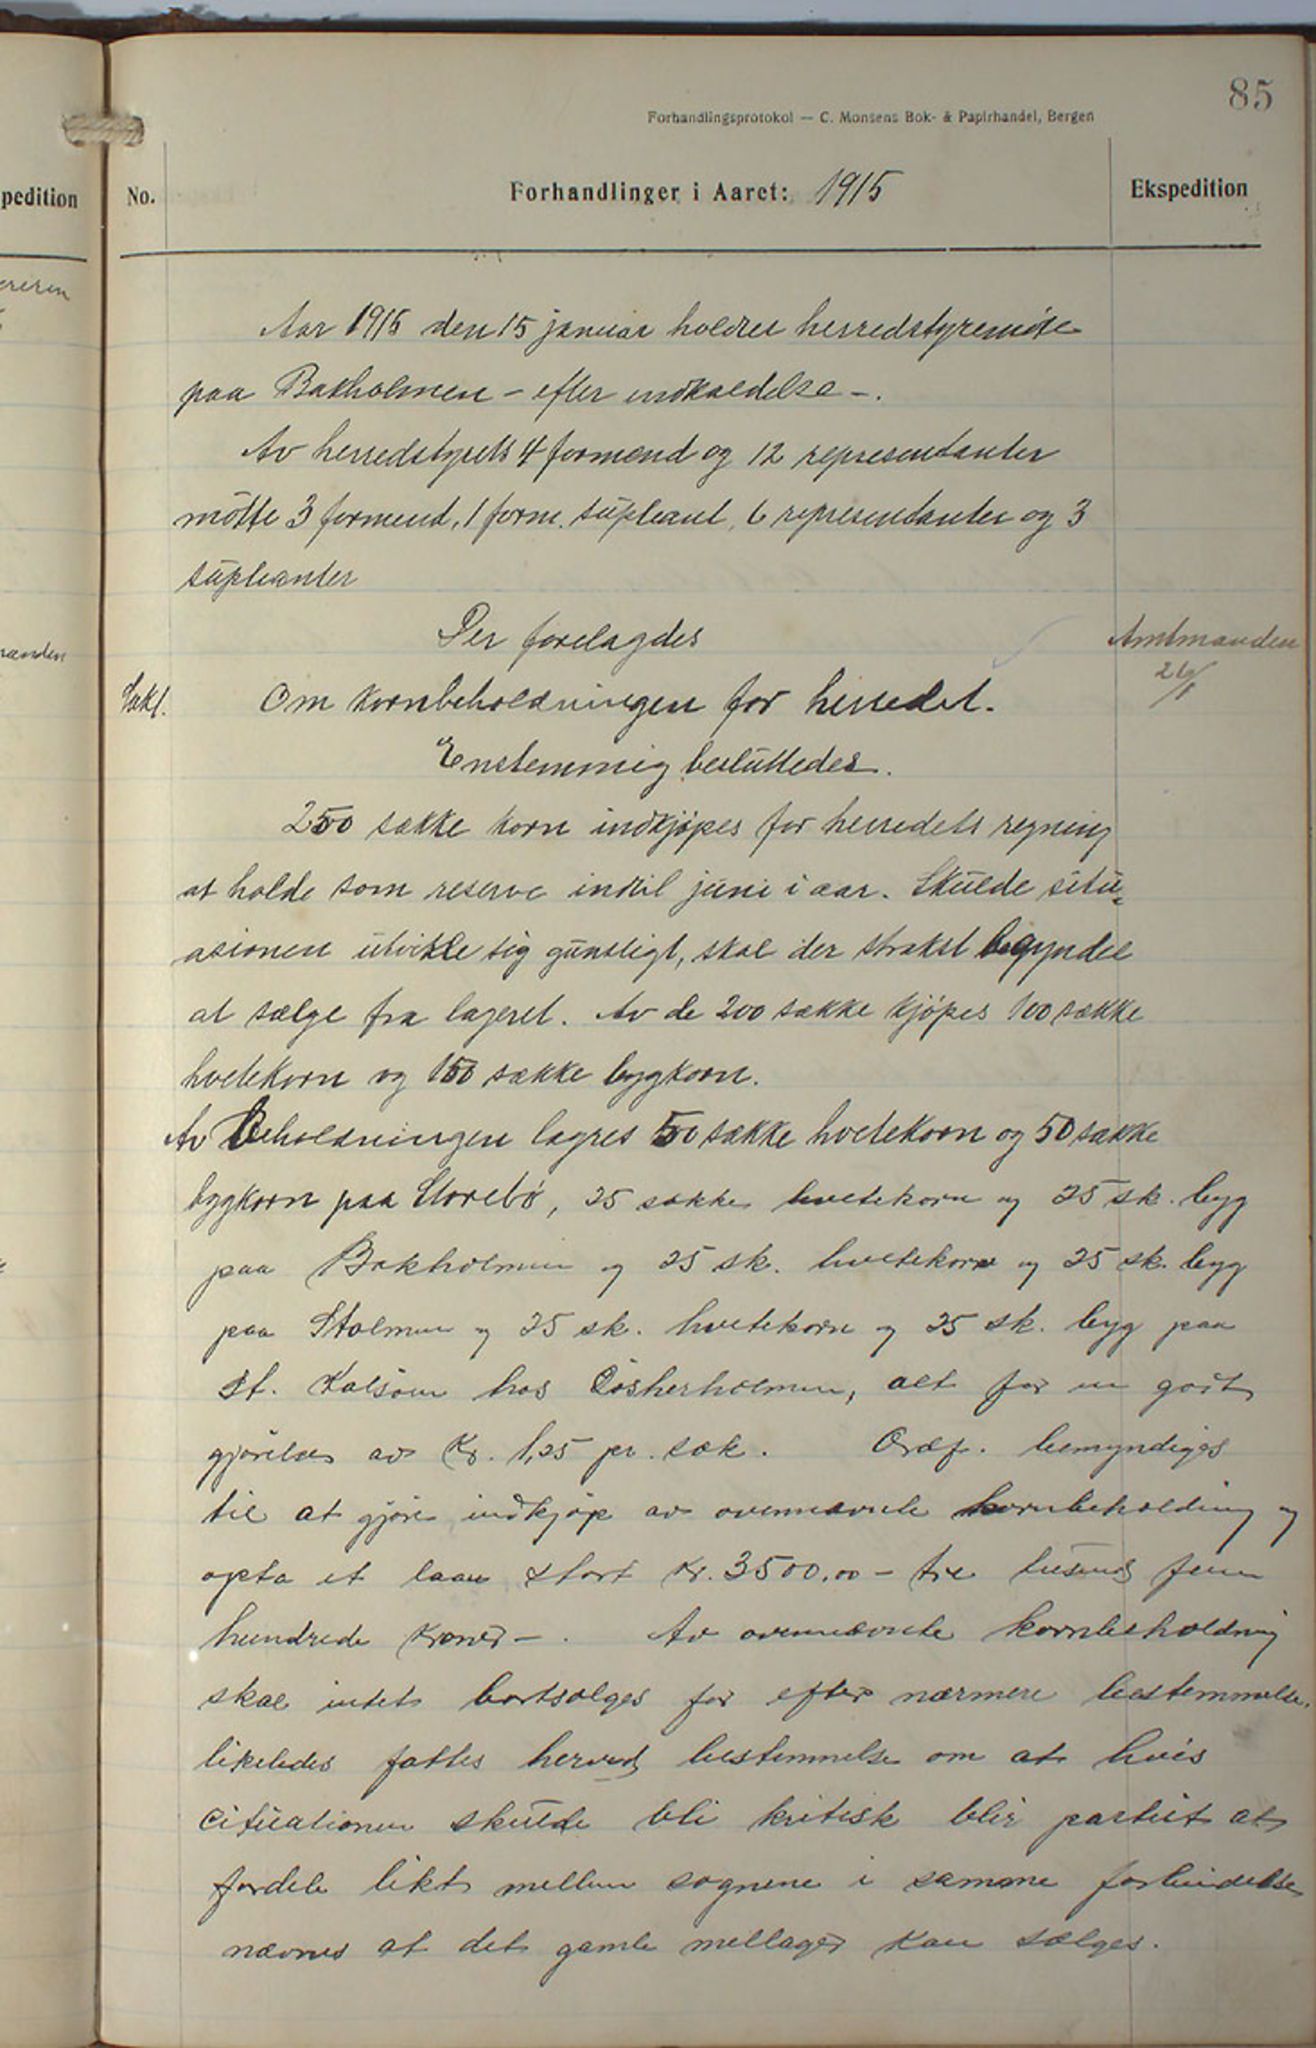 85
Forhandlingsprotokol — C. Monsens Bok- & Papirhandel, Bergen
pedition
No.
Forhandlinger i Aaret: 1915
Ekspedition
Aar 1915 den 15 januar holdtes herredstyremöte
paa Bakholmen - efter indkaldelse -.
Av herredstyrets 4 formænd og 12 representanter
mötte 3 formænd, 1 form. supleant, 6 representanter og 3
supleanter
Der forelagdes
Amtmanden
26/1
Sak 1.
Om kornbeholdningen for herredet.
Enstemmig besluttedes.
250 sække korn indkjöpes for herredets regning
at holde som reserve indtil juni i aar. Skulde situ-
asionen utvikle sig gunstigt, skal der strakst begyndes
at sælge fra lageret. Av de 200 sække kjöpes 100 sække
hvetekorn og 150 sække bygkorn.
Av Beholdningen lagres 50 sække hvetekorn og 50 sække
bygkorn paa Storebö, 25 sække hvetekorn og 25 sk. byg
paa Bakholmen og 25 sk. hvetekorn og 25 sk. byg
paa Stolmen og 25 sk. hvetekorn og 25 sk. byg paa
st. Kalsöen hos alt for en godt
gjörelse av Kr. 1,25 pr. sæk. Ordf. bemyndiges
til at gjöre indkjöp av ovennævnte kornbeholdning og
opta et laan stort Kr. 3500,00 - tre tusend fem
hundrede kroner -. Av ovennævnte kornbeholdning
skal intet bortsælges för efter nærmere bestemmelse.
likeledes fattes herved bestemmelse om at hvis
cituationen skulde bli kritisk blir partiet at
fordele likt mellem sognene i samme forbindelse
nævnes at det gamle mellager kan sælges.